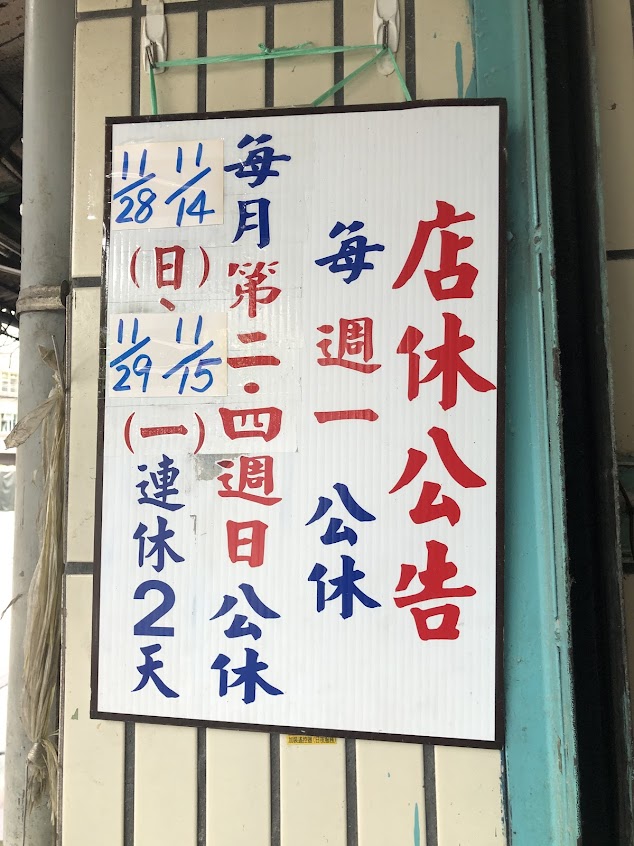 店休公告
每週一 公休
每月第二.四週日公休
11/14 11/28(日)、11/15 11/29(一)連休2天